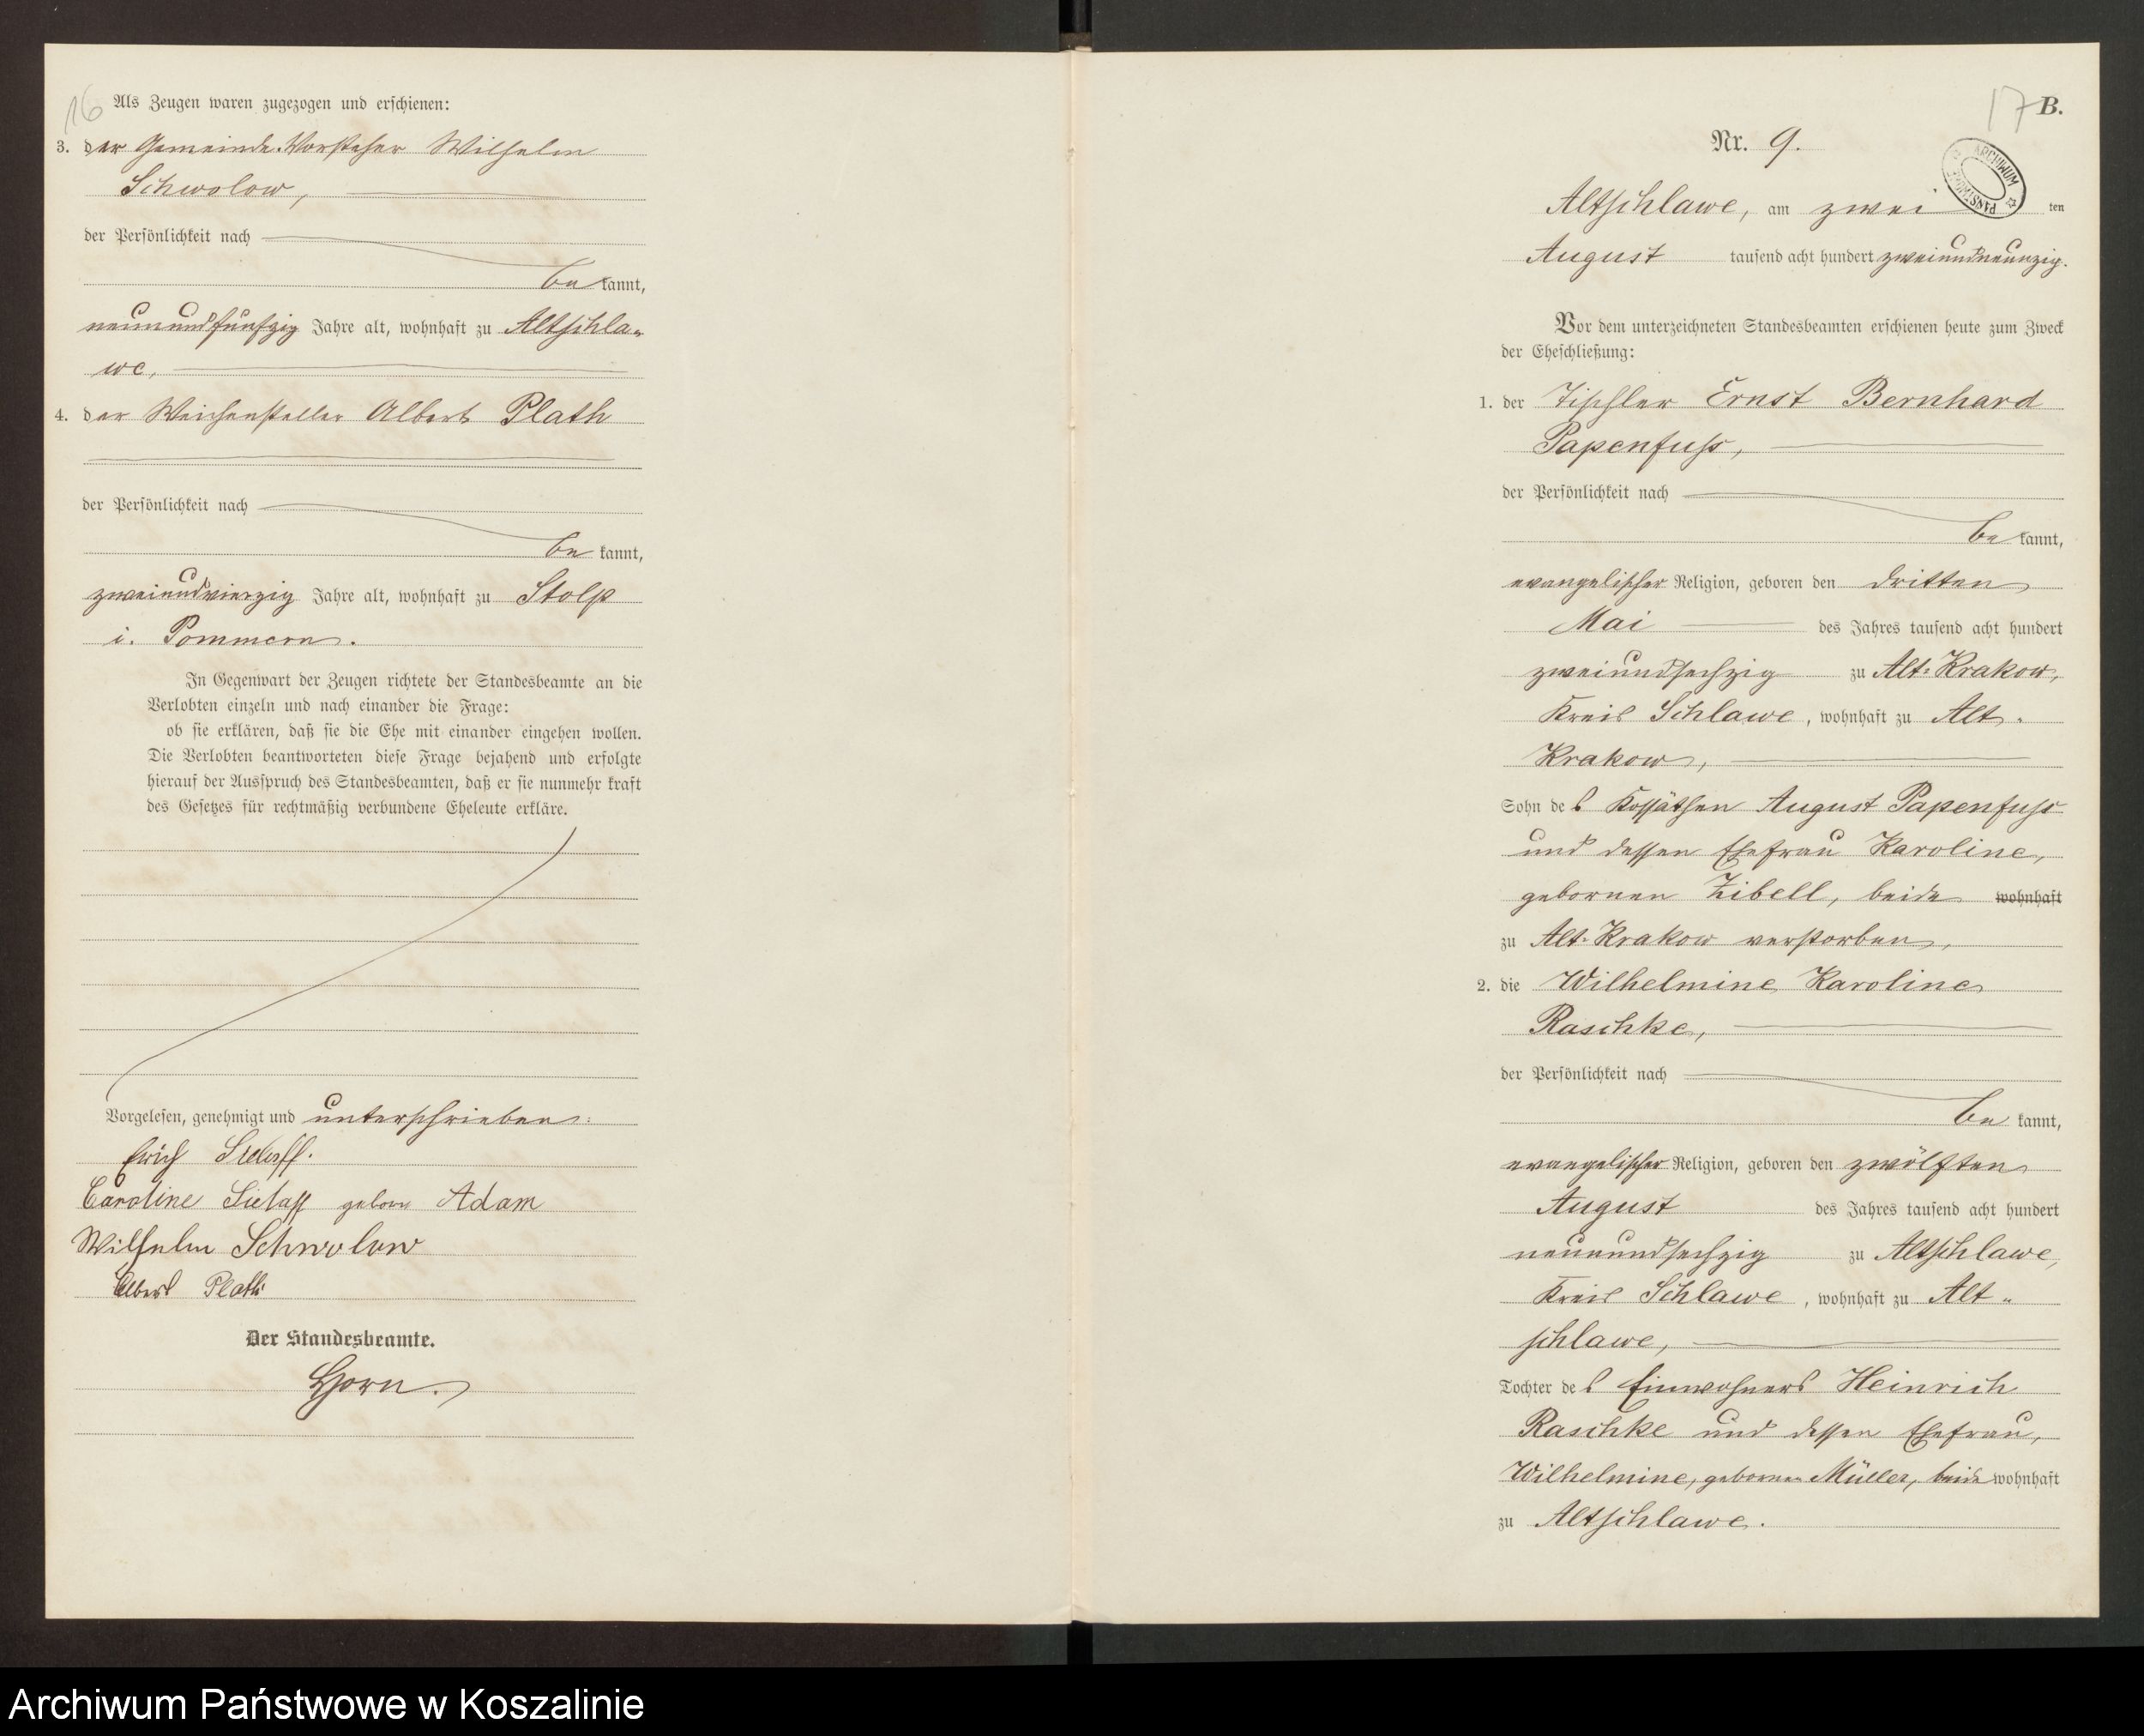 16
Als Zeugen waren zugezogen und erschienen:
3. der Gemeinde-Vorsteher Wilhelm
Schwolow,
der Persönlichkeit nach
be kannt,
neunundfünfzig Jahre alt, wohnhaft zu Altschla-
we,
4. der Weichensteller Albert Plath
der Persönlichkeit nach
be kannt,
zweiundvierzig Jahre alt, wohnhaft zu Stolp
i. Pommern.
In Gegenwart der Zeugen richtete der Standesbeamte an die
Verlobten einzeln und nach einander die Frage:
ob sie erklären, daß sie die Ehe mit einander eingehen wollen.
Die Verlobten beantworteten diese Frage bejahend und erfolgte
hierauf der Ausspruch des Standesbeamten, daß er sie nunmehr kraft
des Gesetzes für rechtmäßig verbundene Eheleute erkläre.
Vorgelesen, genehmigt und unterschrieben:
Erich Sielaff.
Caroline Sielaff geborn Adam
Wilhelm Schwolow
Albert Plath
Der Standesbeamte.
Horn.
17 B.
Nr. 9.
ARCHIWUM PAŃSTWOWE
Altschlawe, am zwei ten
August tausend acht hundert zweiundneunzig.
Vor dem unterzeichneten Standesbeamten erschienen heute zum Zweck
der Eheschließung:
1. der Tischler Ernst Bernhard
Papenfuss,
der Persönlichkeit nach
be kannt,
evangelischer Religion, geboren den dritten
Mai des Jahres tausend acht hundert
zweiundsechzig zu Alt-Krakow,
Kreis Schlawe, wohnhaft zu Alt-
Krakow,
Sohn des Kossäthen August Papenfuss
und dessen Ehefrau Karoline,
gebornen Zibell, beide wohnhaft
zu Alt-Krakow verstorben,
2. die Wilhelmine Karoline
Raschke,
der Persönlichkeit nach
be kannt,
evangelischer Religion, geboren den zwölften
August des Jahres tausend acht hundert
neunundsechzig zu Altschlawe,
Kreis Schlawe, wohnhaft zu Alt-
schlawe,
Tochter des Einwohners Heinrich
Raschke und dessen Ehefrau,
Wilhelmine, gebornen Müller, beide wohnhaft
zu Altschlawe.
Archiwum Państwowe w Koszalinie